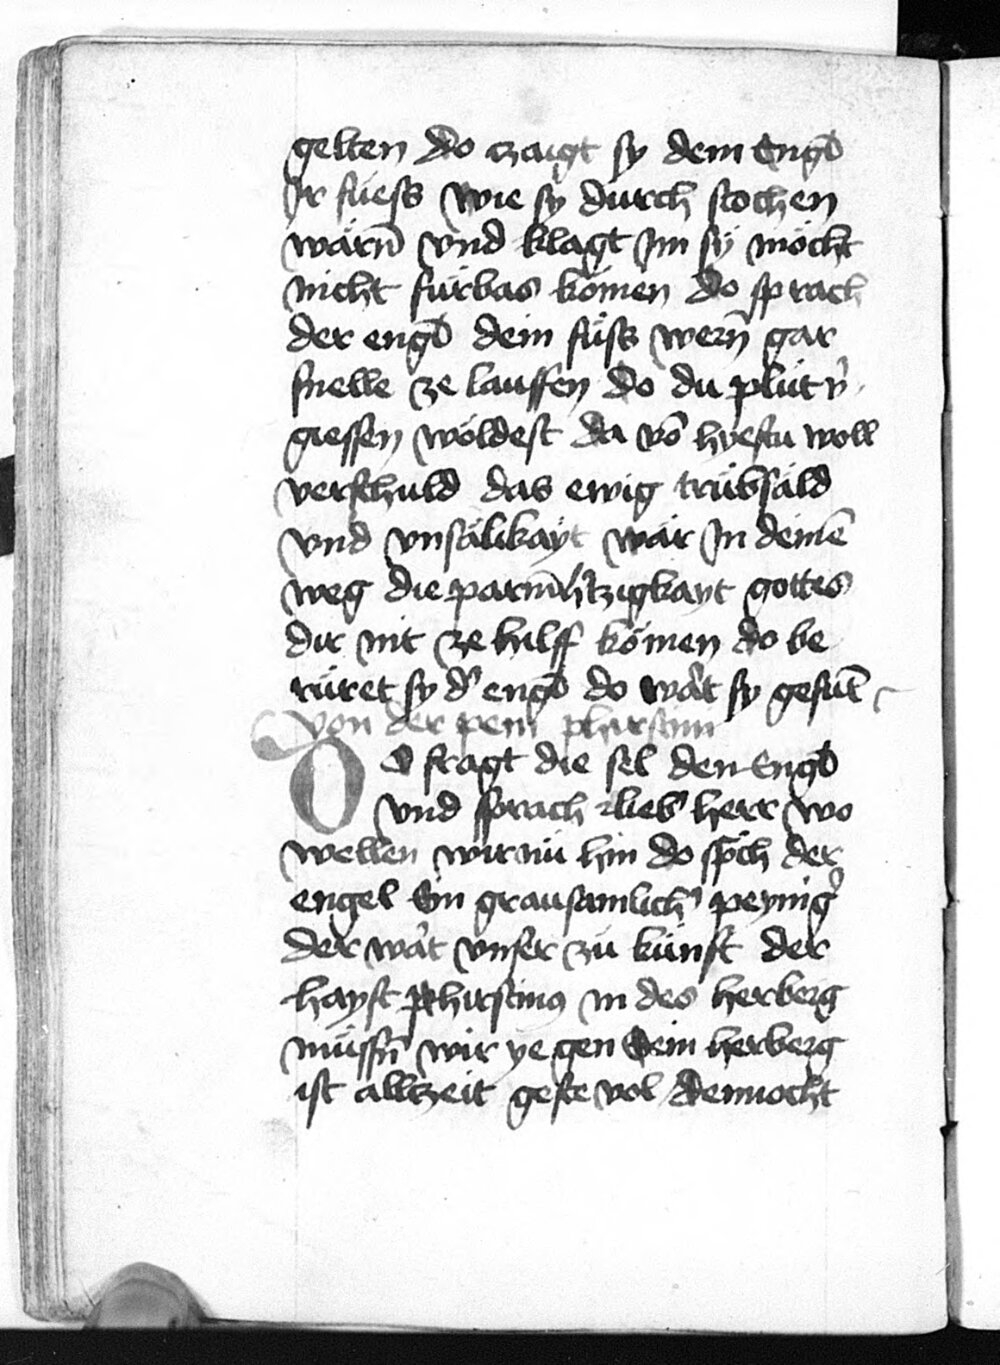 gelten do czaigt sy dem Engl̄
Ir füess wie sy durch stochen
wärn̄ vnd klagt Im sÿ möcht
nicht fürbas kömen do sprach
der engl̄ dein füss wern̄ gar
snelle ze lauffen do du plüt v̓
giessen woldest da vō hyestu woll
verschuld das ewig trübsäld
vnd vnsälikayt wär In deinē
weg die parm̄h̓tzigkayt gottes
dir nit ze hilff kömen do be
rüret sy d̓ engl̄ do wa᷑t sy gesūt
von der pein phirstinn
DO fragt die sel den Engl̄
vnd sprach lieb̓ herr wo
wellen wir nü hin do sp̄ch der
engel Ein grausamlich̓ peynig̓
der wa᷑t vnser zu künft der
hayst phirstinꝰ in des herberg
müssn̄ wir ye gen Sein herberg
ist alltzeit geste vol dennocht